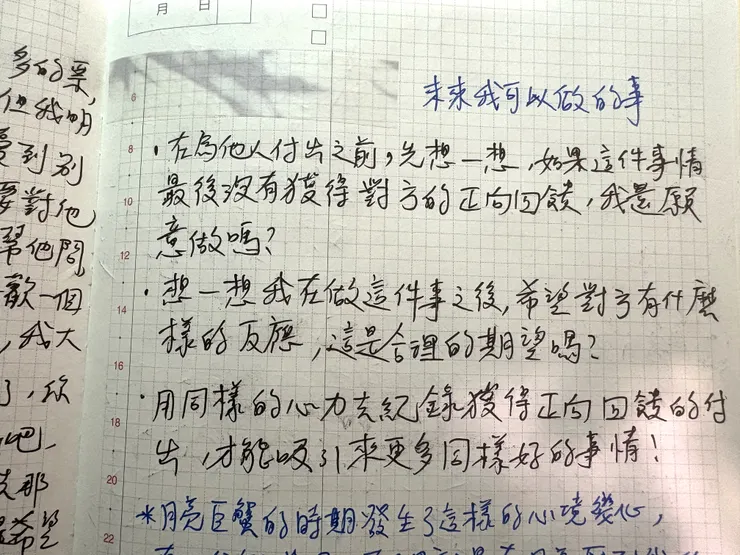 月 日
多的票,
但我明
到別
要對他
幫他問
歡一個
,我大
了,你
吧,
那
希望
6
8
10
12
14
16
18
20
22
未來我可以做的事
・在為他人付出之前,先想一想,如果這件事情
最後沒有獲得對方的正向回饋,我還願
意做嗎?
・想一想我在做這件事之後,希望對方有什麼
樣的反應,這是合理的期望嗎?
・用同樣的心力去紀錄獲得正向回饋的付
出,才能吸引來更多同樣好的事情!
*月亮巨蟹的時期發生了這樣的心境變化,